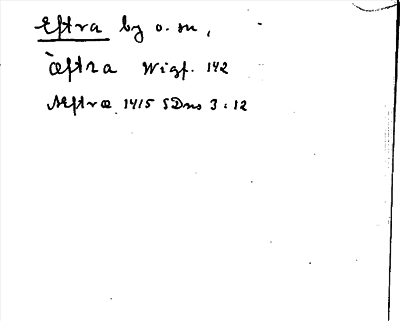 Eftra by o. sn,
æftra Wigf. 142
Aeftræ 1415 SDns 3:12